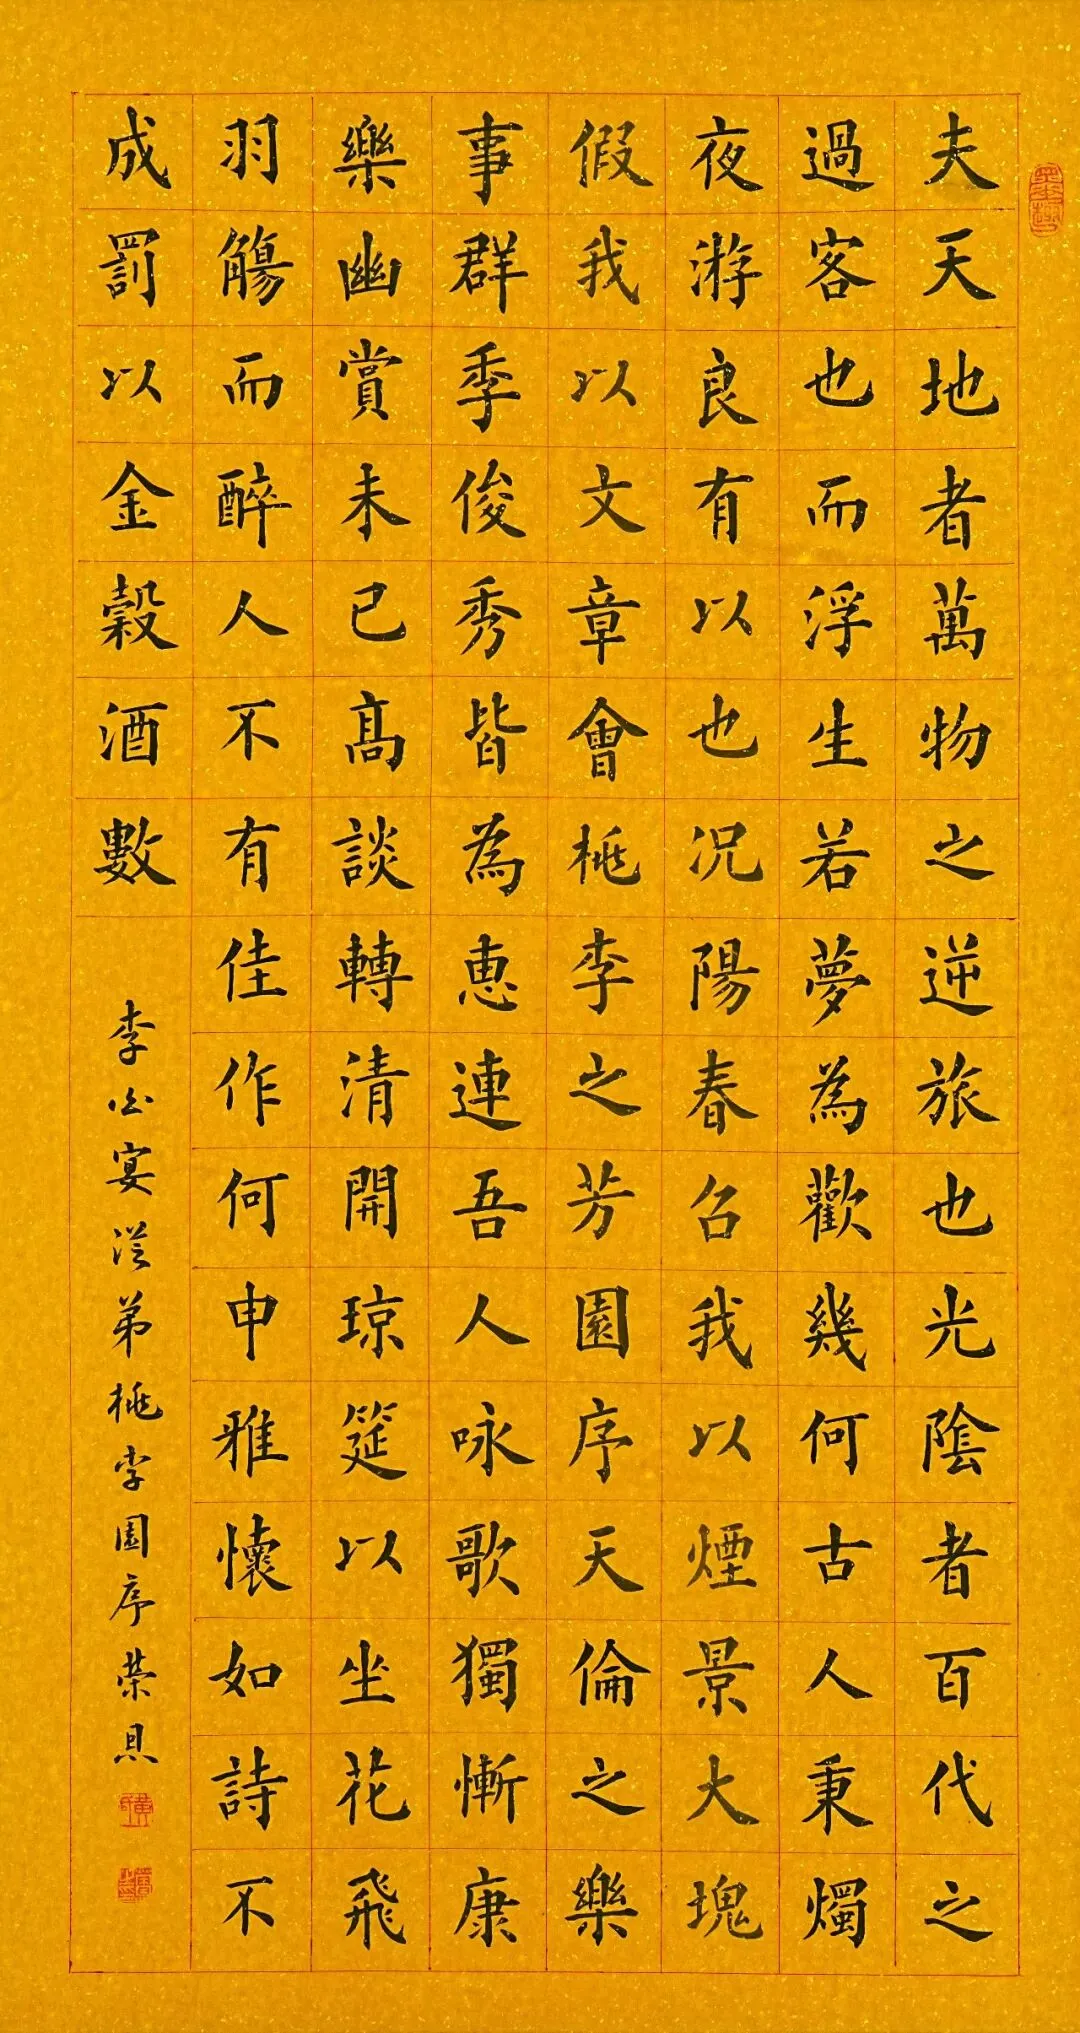 夫天地者萬物之逆旅也光陰者百代之
過客也而浮生若夢為歡幾何古人秉燭
夜游良有以也况陽春召我以煙景大塊
假我以文章會桃李之芳園序天倫之樂
事群季俊秀皆為惠連吾人咏歌獨慚康
樂幽賞未已髙談轉清開琼筵以坐花飛
羽觴而醉人不有佳作何申雅懷如詩不
成罰以金穀酒數
李白宴從弟桃李園序榮